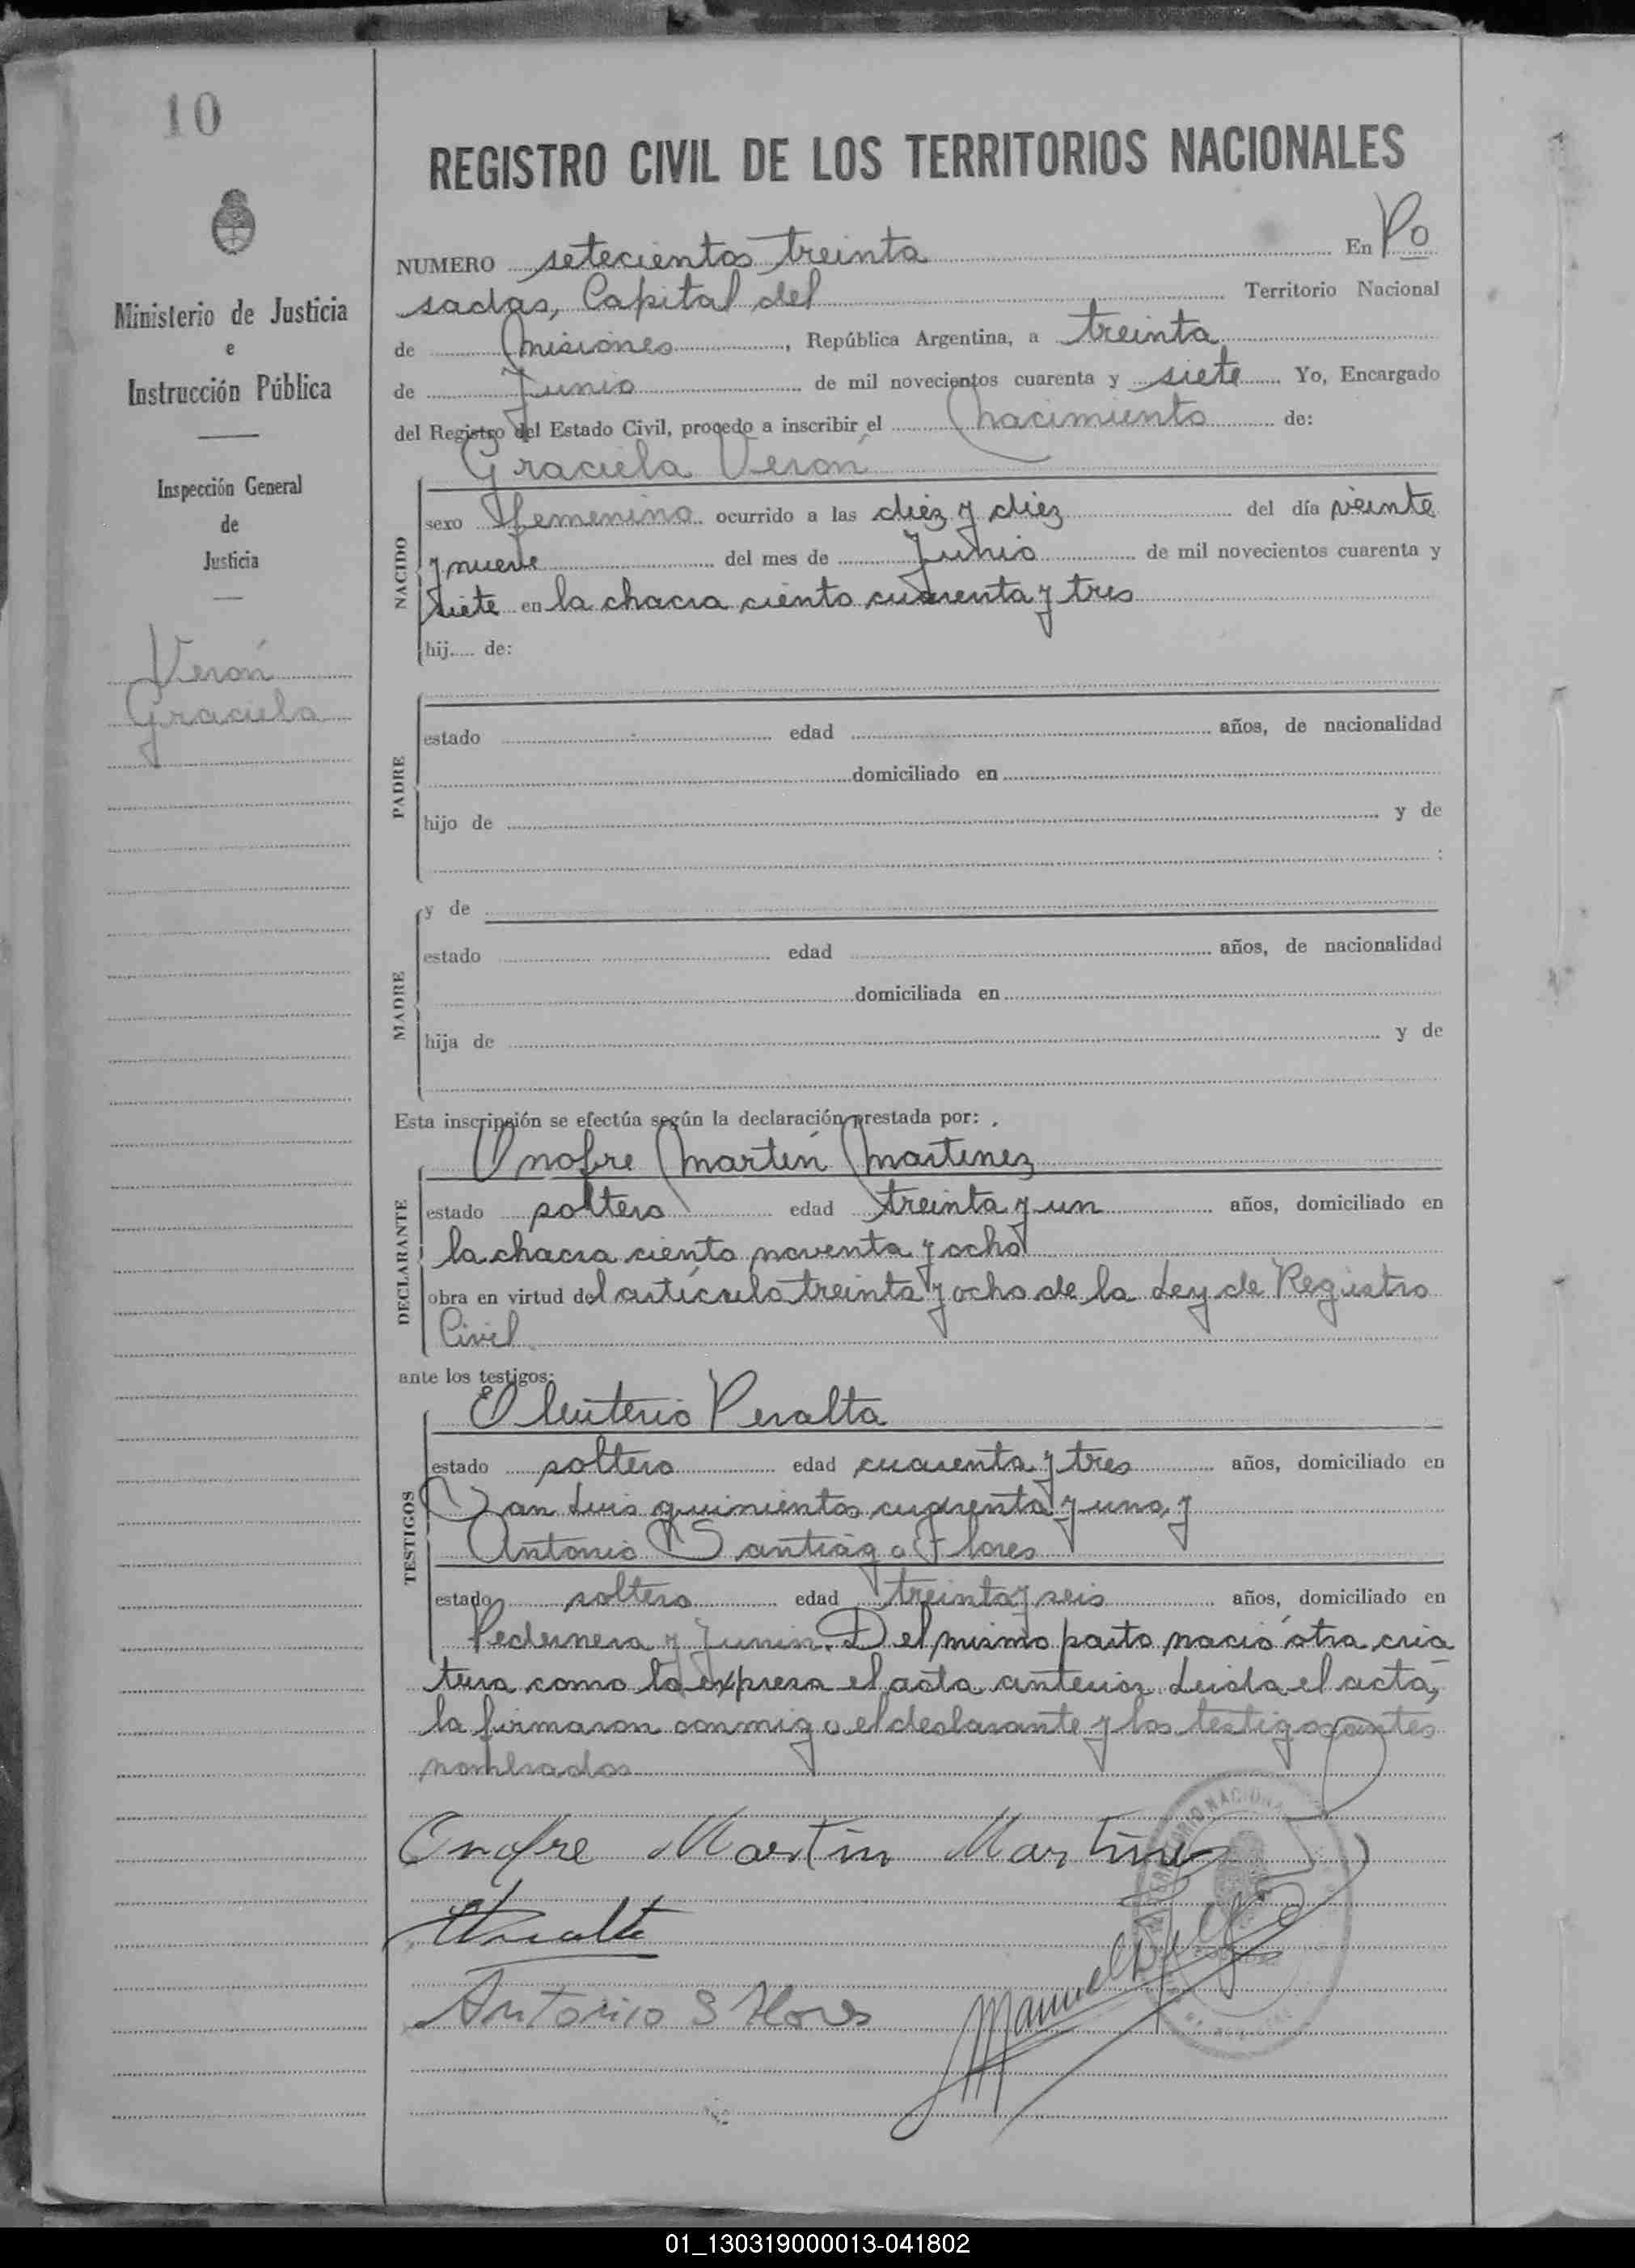 10
REGISTRO CIVIL DE LOS TERRITORIOS NACIONALES
NUMERO setecientos treinta En Po
sadas, Capital del Territorio Nacional
de Misiones, República Argentina, a treinta
de Junio de mil novecientos cuarenta y siete Yo, Encargado
del Registro del Estado Civil, procedo a inscribir el Nacimiento de:
Graciela Verón
Ministerio de Justicia
e
Instrucción Pública
Inspección General
de
Justicia
Verón
Graciela
NACIDO
sexo femenino ocurrido a las diez y diez del día veinte
y nueve del mes de Junio de mil novecientos cuarenta y
siete en la chacra ciento cuarenta y tres
hij..... de:
PADRE
estado edad años, de nacionalidad
domiciliado en
hijo de y de
:
MADRE
y de
estado edad años, de nacionalidad
domiciliada en
hija de y de
Esta inscripción se efectúa según la declaración prestada por:
Onofre Martín Martinez
DECLARANTE
estado soltero edad treinta y un años, domiciliado en
la chacra ciento noventa y ocho
obra en virtud del artículo treinta y ocho de la Ley de Registro
Civil
ante los testigos:
Eleuterio Peralta
TESTIGOS
estado soltero edad cuarenta y tres años, domiciliado en
San Luis quinientos cuarenta y uno, y
Antonio Santiago Flores
estado soltero edad treinta y seis años, domiciliado en
Pedernera y Junin. Del mismo parto nació otra cria
tura como lo expresa el acta anterior. Leida el acta,
la firmaron conmigo el declarante y los testigos antes
nombrados
Onofre Martin Martinez
Peralta
Antonio S Flores
Manuel
01_130319000013-041802